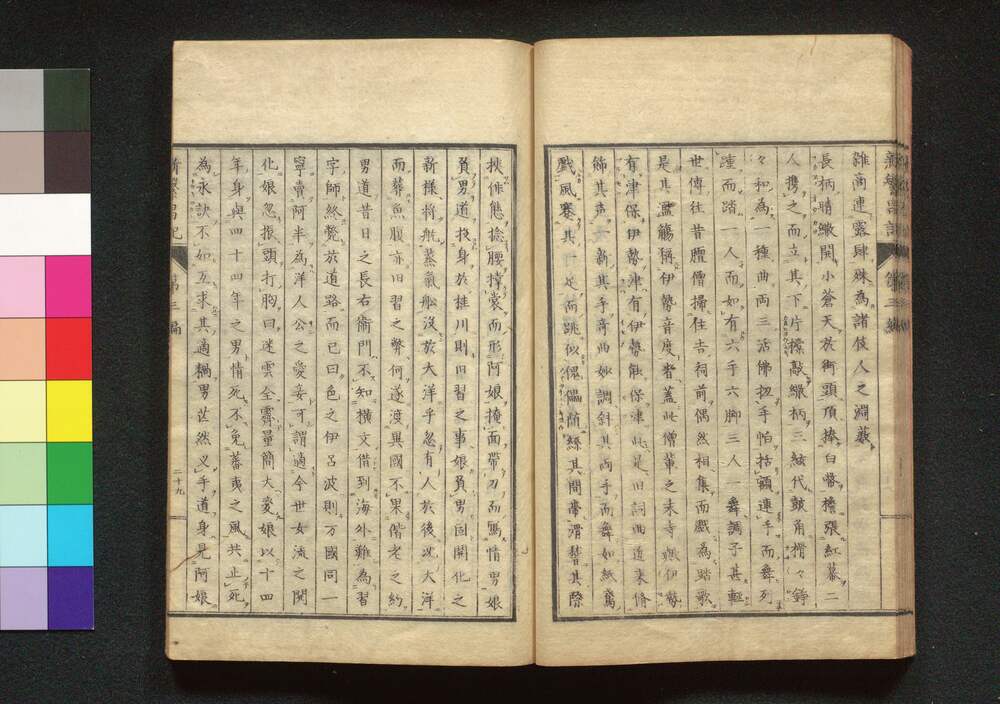 雜商連露肆殊為諸伎人之淵藪
長柄晴繖開小蒼天於街頭頂捧白幣檐張紅幕二
人携之而立其下片標敲繖柄三絃代皷角楷々錚
々和為一種曲両三活佛扭手帕括額連手而舞列
踵而踏一人而如有六手六脚三人一舞調子甚輕
世傳往昔贋僧揚住吉祠前偶然相集而戯為踏歌
是其濫觴稱伊勢音度者蓋此僧輩之来寺
有津保伊勢津有伊勢能保津此是旧詞曲近来脩
飾其声一新其手奇曲妙調斜其両手而舞如紙鳶
戯風蹇其一足而跳似傀儡其間帯滑替其際
挾俳態捻腰撐裳而形阿娘掩面帶刀而罵情男娘
負男道投身於桂川則旧習之事娘負男固開化之
新様将航蒸氣舩没於大洋乎忽有人於後以大洋
而葬魚腹亦旧習之弊何遂渡異國不果偕老之約
男道昔日之長右衛門不知横文借到海外難為習
字師終斃於道路而已曰色之伊呂波則万國同一
寧賣阿半為洋人公之愛妾可謂適今世女流之開
化娘忽振頭打胸曰迷雲全霽量簡大愛娘以十四
年身與四十四年之男情死不免蕃夷之風共止死
為永訣不如互求其適耦男茫然乂手道身見阿娘
新繁昌記
第三編
二十九